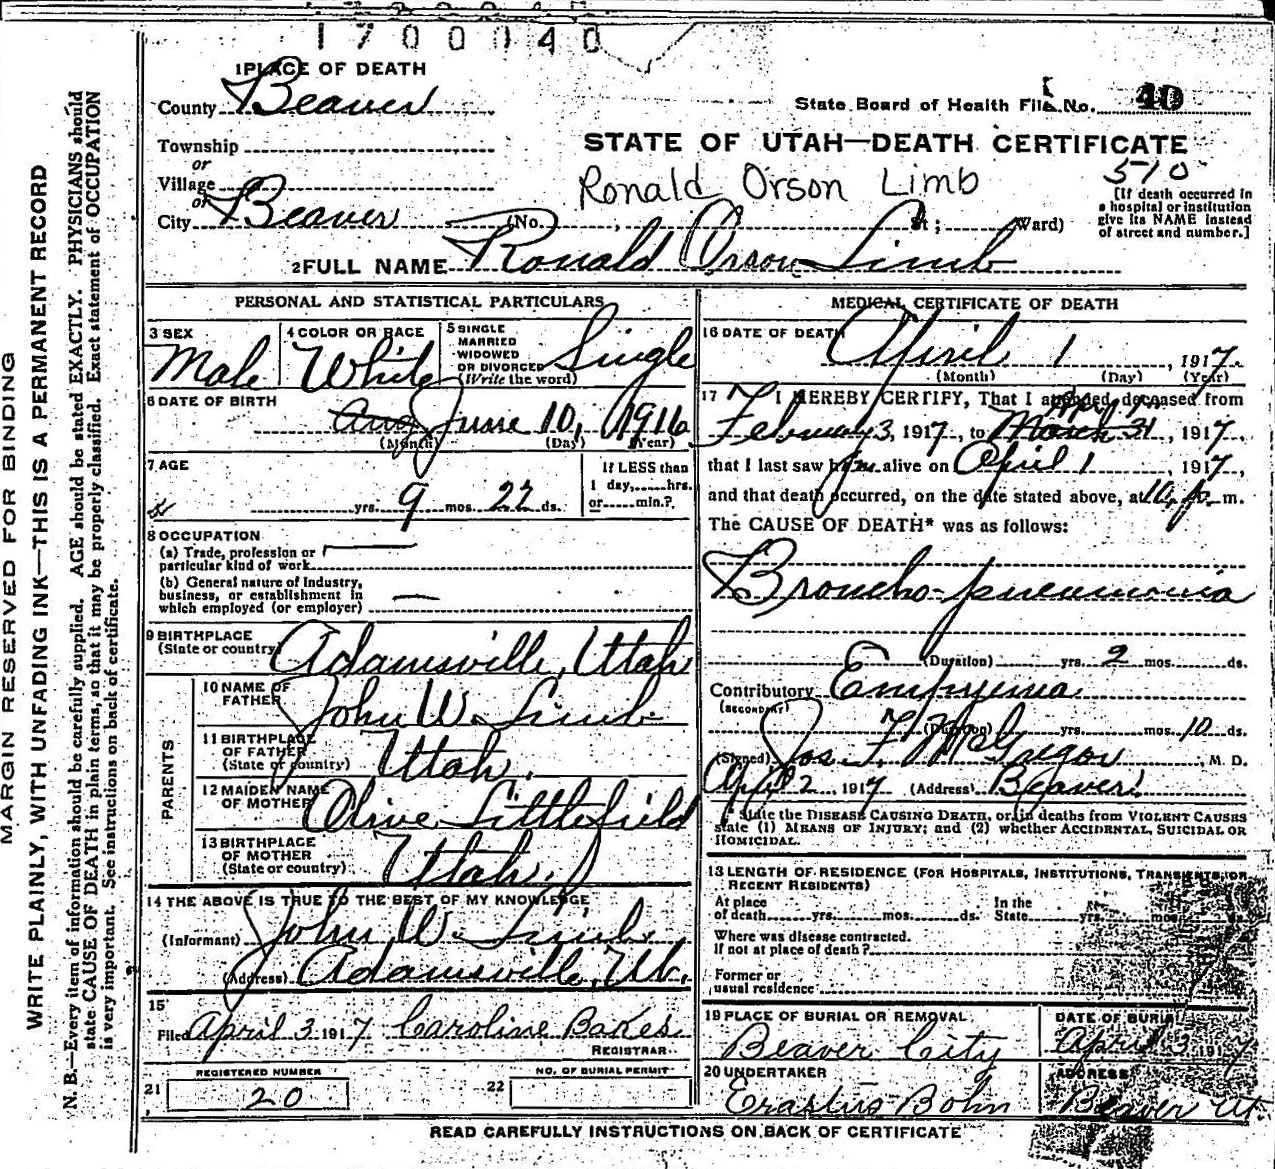 1700040
1 PLACE OF DEATH
County Beaver
State Board of Health File No. 40
Township
or
Village
or
City Beaver (No. , St; Ward)
STATE OF UTAH—DEATH CERTIFICATE
Ronald Orson Limb
510
[If death occurred in
a hospital or institution
give its NAME instead
of street and number.]
2 FULL NAME Ronald Orson Limb
PERSONAL AND STATISTICAL PARTICULARS
3 SEX
Male
4 COLOR OR RACE
White
5 SINGLE
MARRIED
WIDOWED
OR DIVORCED
(Write the word)
Single
6 DATE OF BIRTH
Aug June 10, 1916
(Month) (Day) (Year)
7 AGE
yrs. 9 mos. 22 ds.
If LESS than
1 day,......hrs.
or......min.?
8 OCCUPATION
(a) Trade, profession or
particular kind of work
(b) General nature of industry,
business, or establishment in
which employed (or employer)
9 BIRTHPLACE
(State or country) Adamsville, Utah
PARENTS
10 NAME OF
FATHER John W. Limb
11 BIRTHPLACE
OF FATHER
(State or country) Utah.
12 MAIDEN NAME
OF MOTHER Olive Littlefield
13 BIRTHPLACE
OF MOTHER
(State or country) Utah.
14 THE ABOVE IS TRUE TO THE BEST OF MY KNOWLEDGE
(Informant) John W. Limb
(Address) Adamsville, Ut.
15
Filed April 3 1917 Caroline Bakes
REGISTRAR
21 REGISTERED NUMBER
20
22 NO. OF BURIAL PERMIT
MEDICAL CERTIFICATE OF DEATH
16 DATE OF DEATH
April 1, 1917.
(Month) (Day) (Year)
17 I HEREBY CERTIFY, That I attended deceased from
February 3, 1917, to March 31, 1917,
that I last saw him alive on April 1, 1917,
and that death occurred, on the date stated above, at 10, p. m.
The CAUSE OF DEATH* was as follows:
Broncho-pneumonia
(Duration) yrs. 2 mos. ds.
Contributory Empyema
(SECONDARY)
(Duration) yrs. mos. 10 ds.
(Signed) Jos. F. McGregor, M. D.
April 2 1917 (Address) Beaver.
* State the DISEASE CAUSING DEATH, or, in deaths from VIOLENT CAUSES
state (1) MEANS OF INJURY; and (2) whether ACCIDENTAL, SUICIDAL OR
HOMICIDAL.
13 LENGTH OF RESIDENCE (FOR HOSPITALS, INSTITUTIONS, TRANSIENTS, OR
RECENT RESIDENTS)
At place
of death yrs. mos. ds.
In the
State yrs. mos. ds.
Where was disease contracted.
If not at place of death?
Former or
usual residence
19 PLACE OF BURIAL OR REMOVAL
Beaver City
DATE OF BURIAL
April 3 1917
20 UNDERTAKER
Erastus Bohn
ADDRESS
Beaver Ut.
READ CAREFULLY INSTRUCTIONS ON BACK OF CERTIFICATE
MARGIN RESERVED FOR BINDING
WRITE PLAINLY, WITH UNFADING INK—THIS IS A PERMANENT RECORD
N. B.—Every item of information should be carefully supplied. AGE should be stated EXACTLY. PHYSICIANS should
state CAUSE OF DEATH in plain terms, so that it may be properly classified. Exact statement of OCCUPATION
is very important. See instructions on back of certificate.